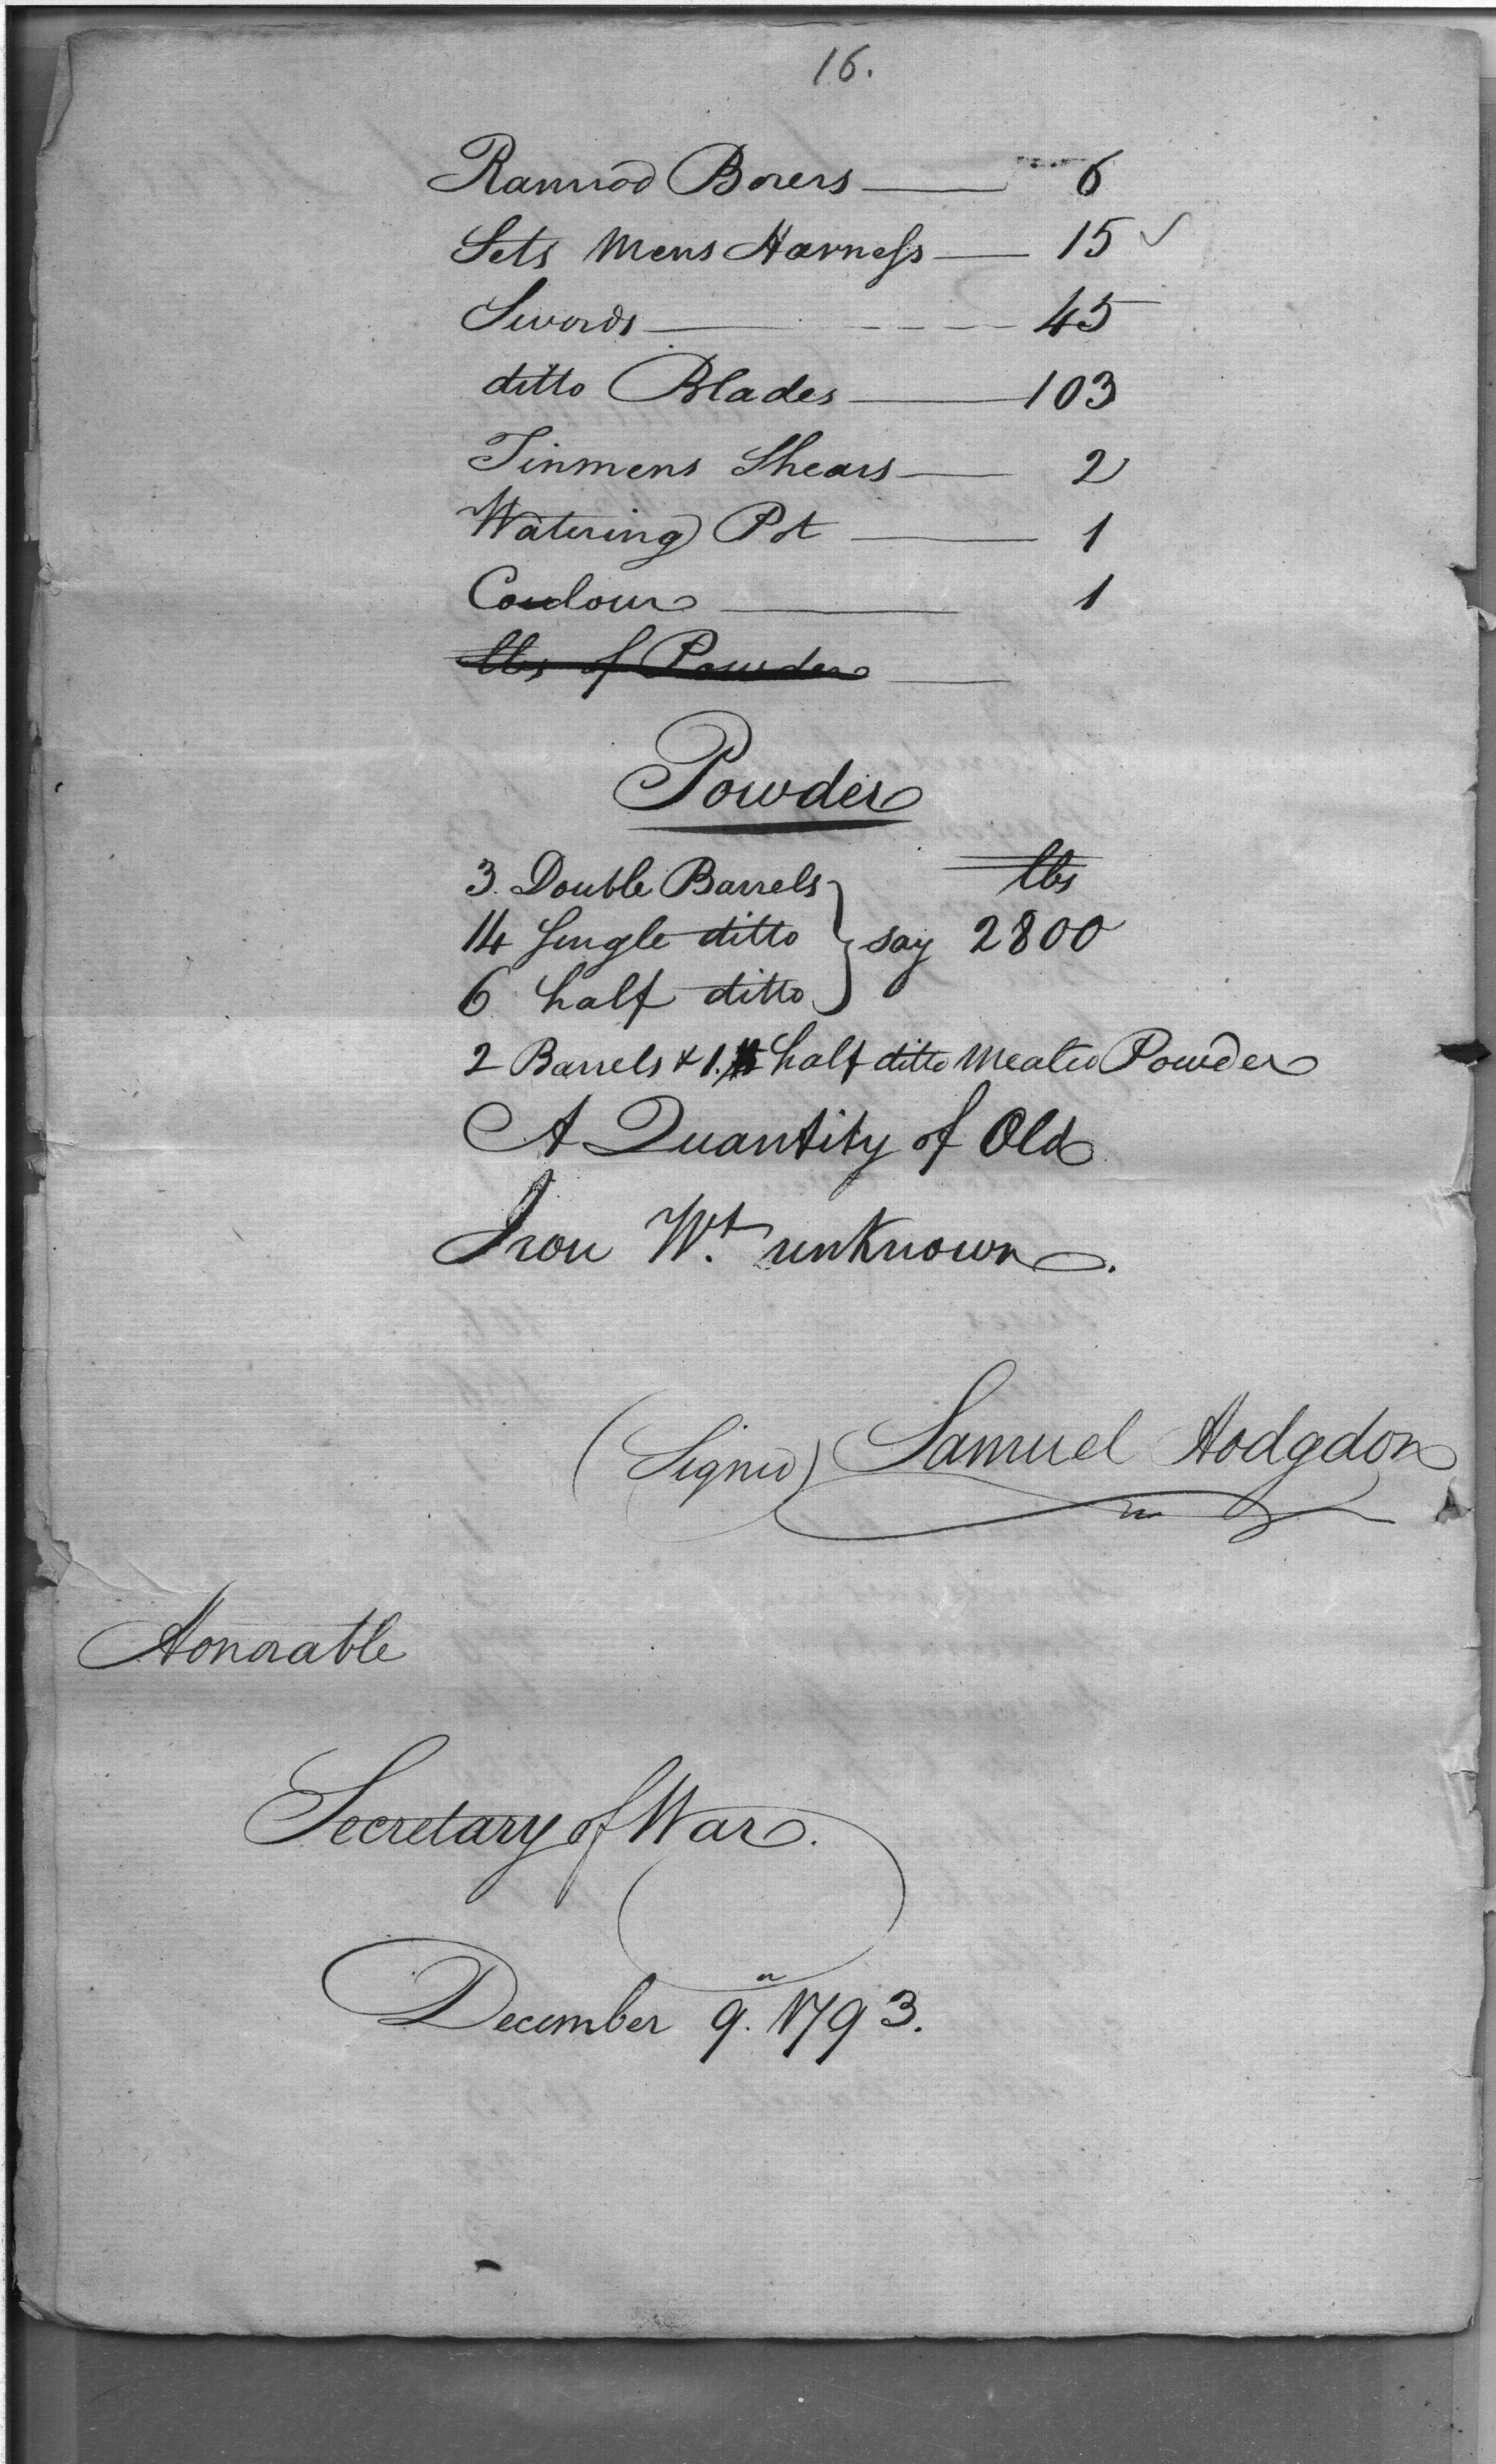 16.
Ramrod Borers — 6
Sets Mens Harness — 15 ✓
Swords — 45
ditto Blades — 103
Tinmens Shears — 2
Watering Pot — 1
1
lbs of Powder —
Powder
3. Double Barrels lbs
14 Single ditto } say 2800
6 half ditto
2 Barrels & 1. half ditto Mealed Powder
A Quantity of Old
Iron Wt. unknown.
(Signed) Samuel Hodgdon
Honorable
Secretary of War.
December 9. 1793.